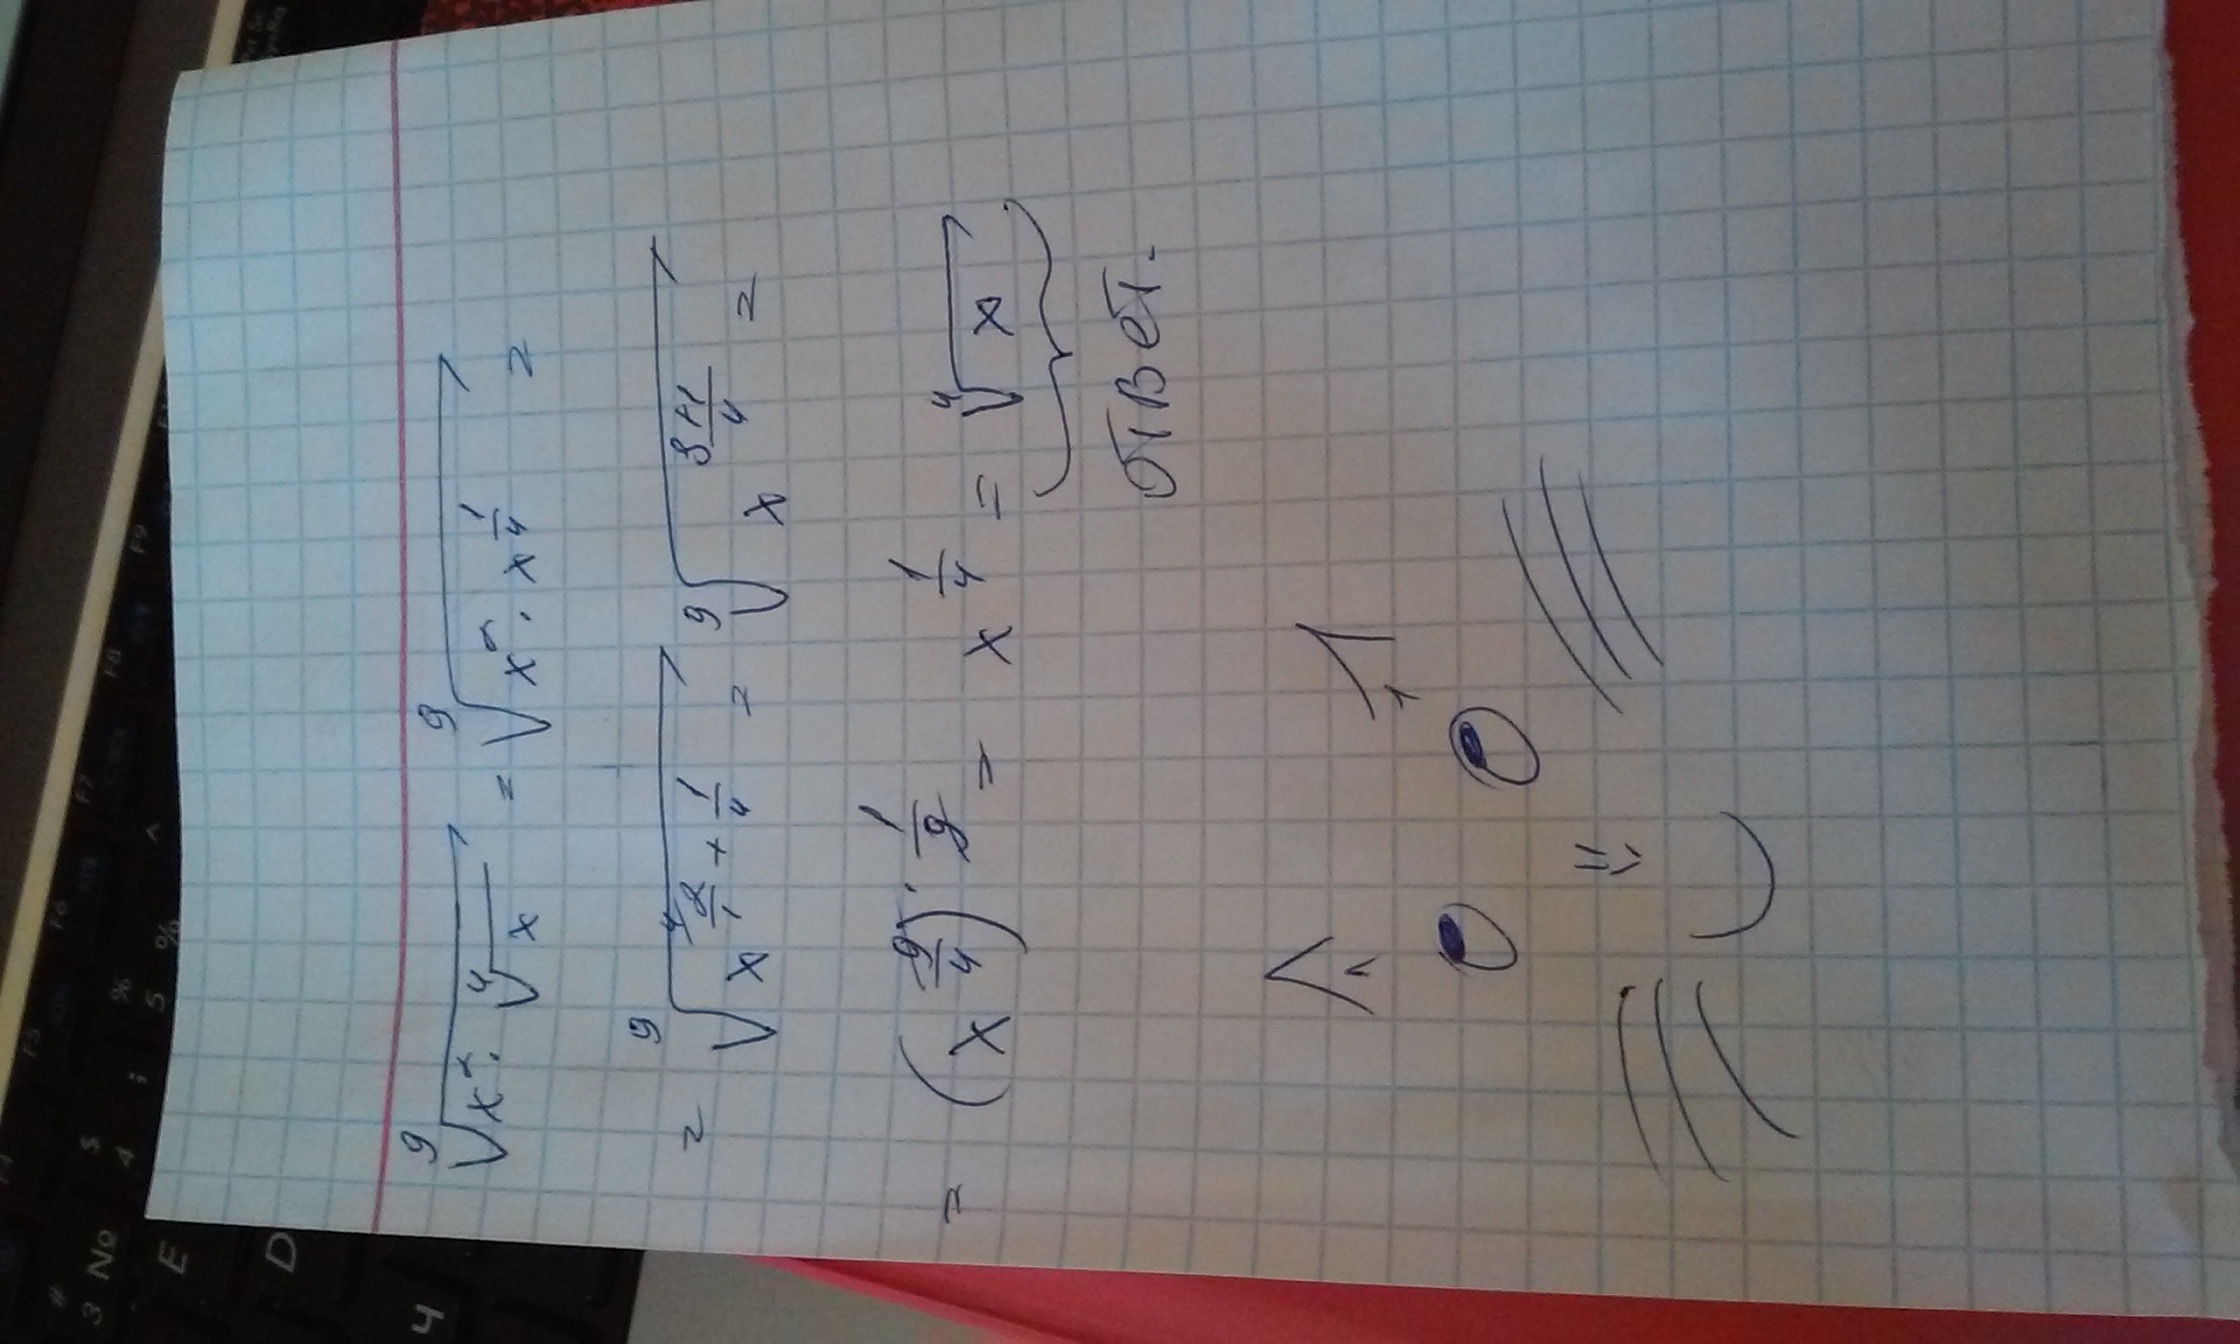 ⁹√(x² · ⁴√x) = ⁹√(x² · x^(1/4)) =
= ⁹√(x^(2/1 + 1/4)) = ⁹√(x^((8+1)/4)) =
= (x^(9/4))^(1/9) = x^(1/4) = ⁴√x
ответ.